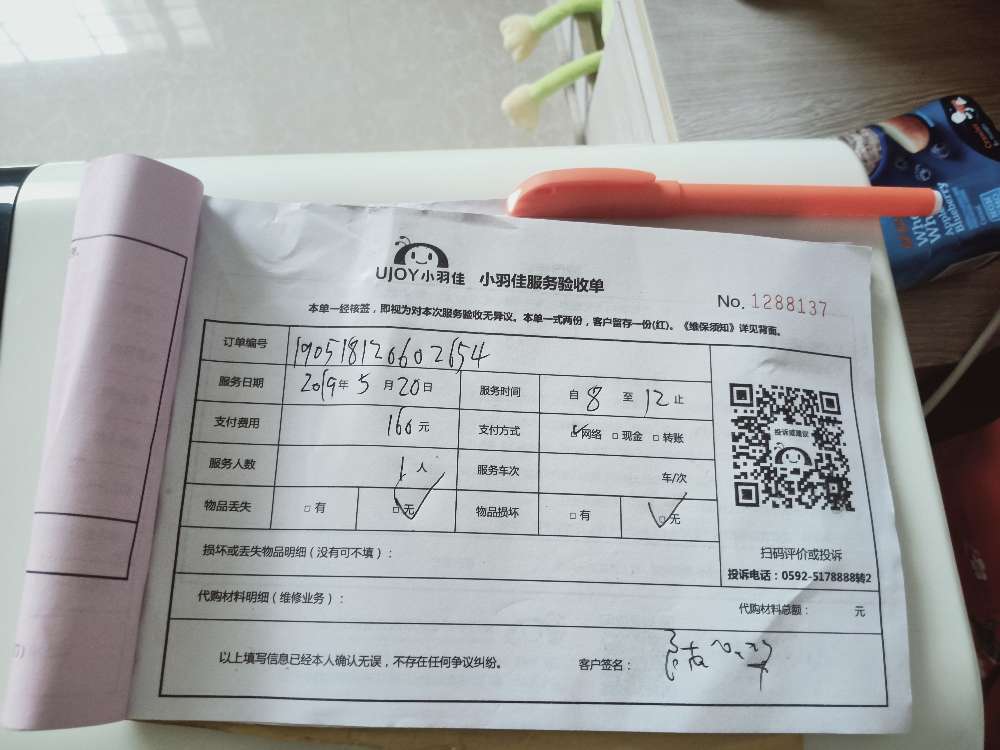 UJOY小羽佳 小羽佳服务验收单
No. 1288137
本单一经核签，即视为对本次服务验收无异议。本单一式两份，客户留存一份(红)。《维保须知》详见背面。
订单编号 190518126602654
服务日期 2019年5月20日 服务时间 自8至12止
支付费用 160元 支付方式 ☑网络 □现金 □转账
服务人数 1人 服务车次 车/次
物品丢失 □有 ☑无 物品损坏 □有 ☑无
投诉或建议
扫码评价或投诉
投诉电话：0592-5178888转2
损坏或丢失物品明细（没有可不填）：
代购材料明细（维修业务）： 代购材料总额： 元
以上填写信息已经本人确认无误，不存在任何争议纠纷。 客户签名：
Apple
Blueberry